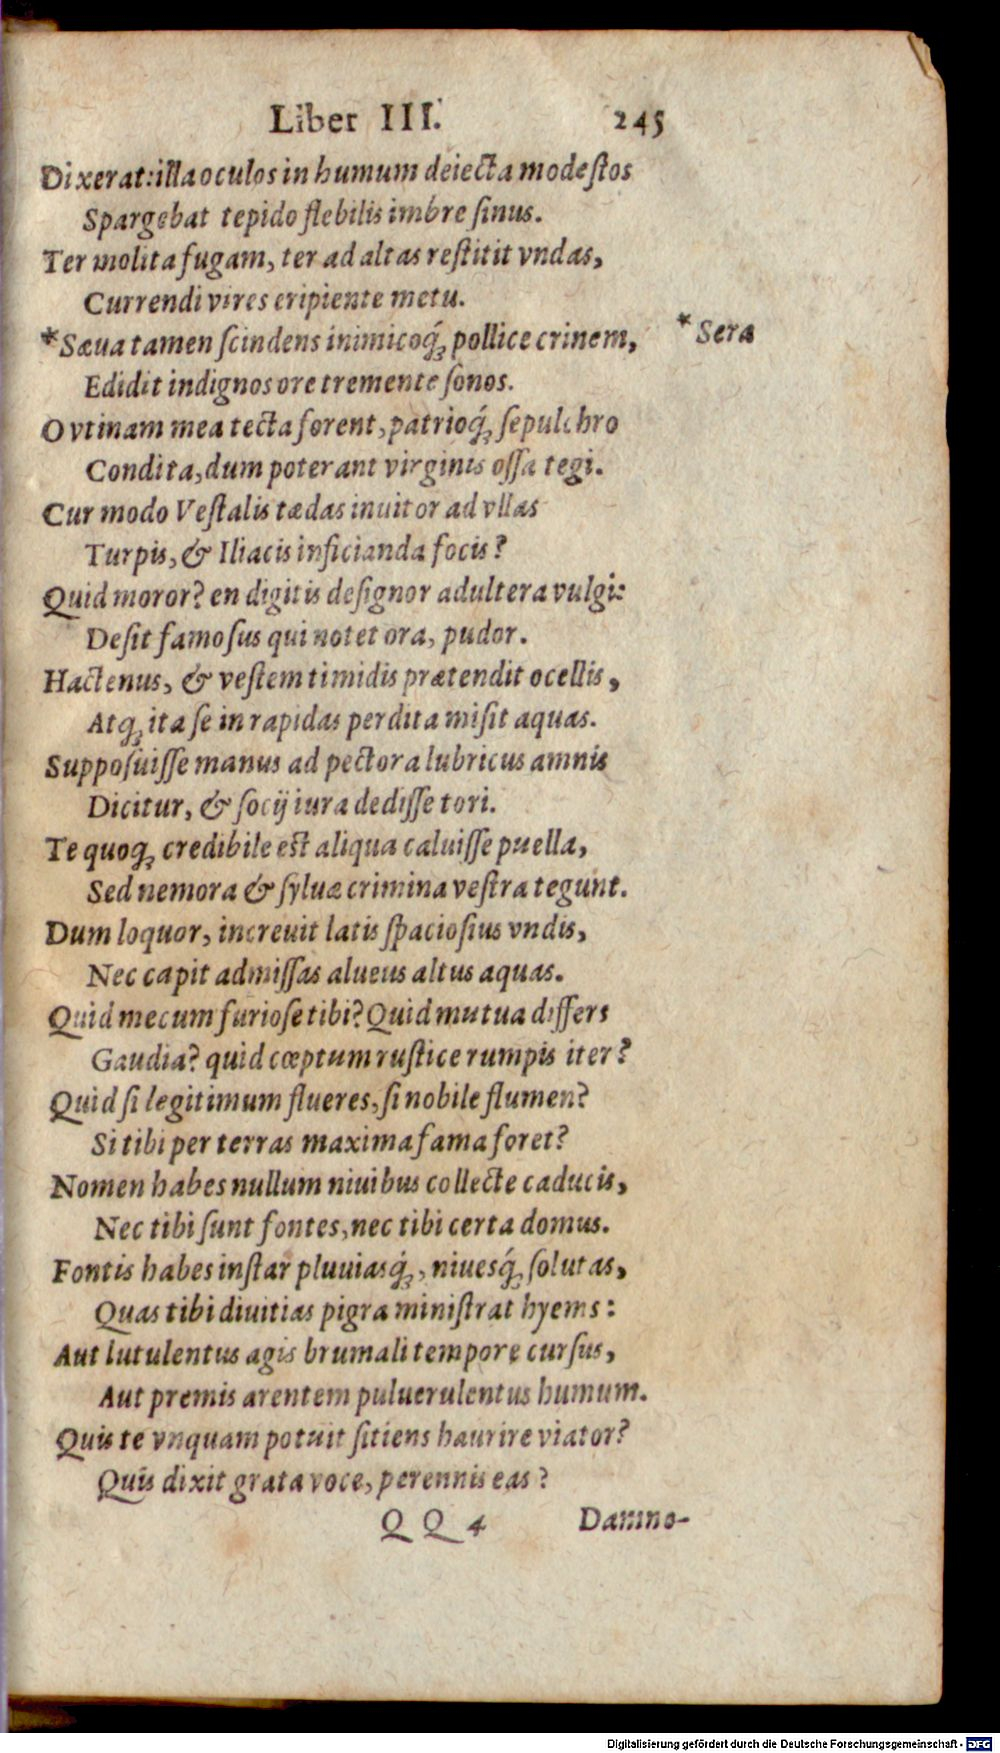 Liber III. 245
Dixerat: illa oculos in humum deiecta modestos
Spargebat tepido flebilis imbre sinus.
Ter molita fugam, ter ad altas restitit vndas,
Currendi vires eripiente metu.
*Sæua tamen scindens inimicoq́; pollice crinem, *Sera
Edidit indignos ore tremente sonos.
O vtinam mea tecta forent, patrioq́; sepulchro
Condita, dum poterant virginis ossa tegi.
Cur modo Vestalis tædas inuitor ad vllas
Turpis, & Iliacis inficianda focis?
Quid moror? en digitis designor adultera vulgi:
Desit famosus qui notet ora, pudor.
Hactenus, & vestem timidis prætendit ocellis,
Atq; ita se in rapidas perdita misit aquas.
Supposuisse manus ad pectora lubricus amnis
Dicitur, & socij iura dedisse tori.
Te quoq; credibile est aliqua caluisse puella,
Sed nemora & syluæ crimina vestra tegunt.
Dum loquor, increuit latis spaciosius vndis,
Nec capit admissas alueus altus aquas.
Quid mecum furiose tibi? Quid mutua differs
Gaudia? quid cœptum rustice rumpis iter?
Quid si legitimum flueres, si nobile flumen?
Si tibi per terras maxima fama foret?
Nomen habes nullum niuibus collecte caducis,
Nec tibi sunt fontes, nec tibi certa domus.
Fontis habes instar pluuiasq́;, niuesq́; solutas,
Quas tibi diuitias pigra ministrat hyems:
Aut lutulentus agis brumali tempore cursus,
Aut premis arentem puluerulentus humum.
Quis te vnquam potuit sitiens haurire viator?
Quis dixit grata voce, perennis eas?
QQ 4 Damno-
Digitalisierung gefördert durch die Deutsche Forschungsgemeinschaft - DFG